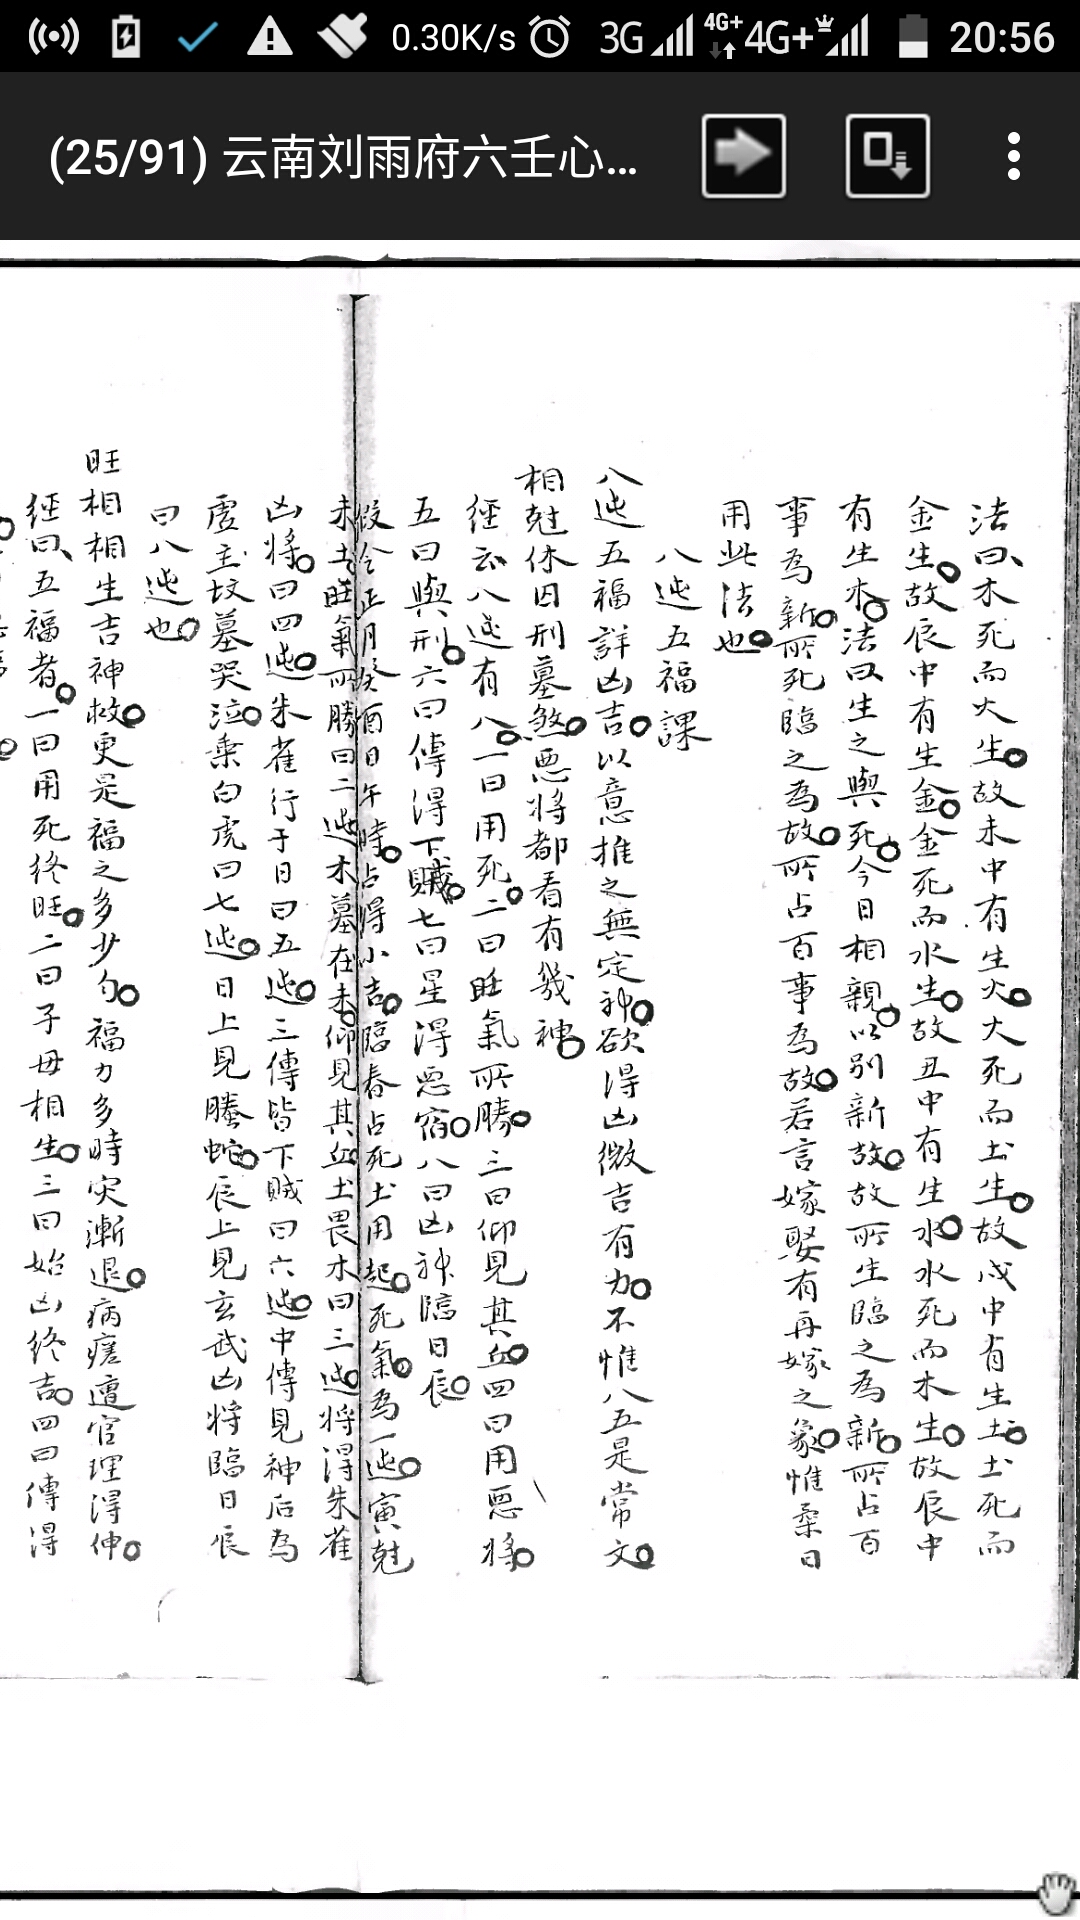 0.30K/s 3G 4G+ 4G+ 20:56
(25/91) 云南刘雨府六壬心...
法曰、木死而火生。故未中有生火。火死而土生。故戌中有生土。土死而
金生。故辰中有生金。金死而水生。故丑中有生水。水死而木生。故辰中
有生木。法曰生之與死。今日相親。以別新故。故所生臨之為新。所占百
事為新。所死臨之為故。所占百事為故。若言嫁娶有再嫁之象。惟桑日
用此法也。
八迍五福課
八迍五福詳凶吉。以意推之無定神。欲得凶微吉有力。不惟八五是常文。
相尅休囚刑墓煞。惡将都看有幾神。
經云八迍有八。一曰用死。二曰旺氣所勝。三曰仰見其丘。四曰用惡将。
五曰與刑。六曰傳得下賊。七曰星得惡宿。八曰凶神臨日辰。
假令正月癸酉日午時。占得小吉。臨春占死土用起。死氣。為一迍。寅尅
未土旺氣所勝曰二迍。木墓在未。仰見其丘。土畏木曰三迍。将得朱雀
凶将。曰四迍。朱雀行于日曰五迍。三傳皆下賊曰六迍。中傳見神后為
虚主坟墓哭泣。乘白虎曰七迍。日上見螣蛇。辰上見玄武凶将臨日辰
曰八迍也。
旺相相生吉神救。更是福之多少勻。福力多時灾漸退。病瘥遭官理得伸。
經曰、五福者。一曰用死终旺。二曰子母相生。三曰始凶终吉。四曰傳得